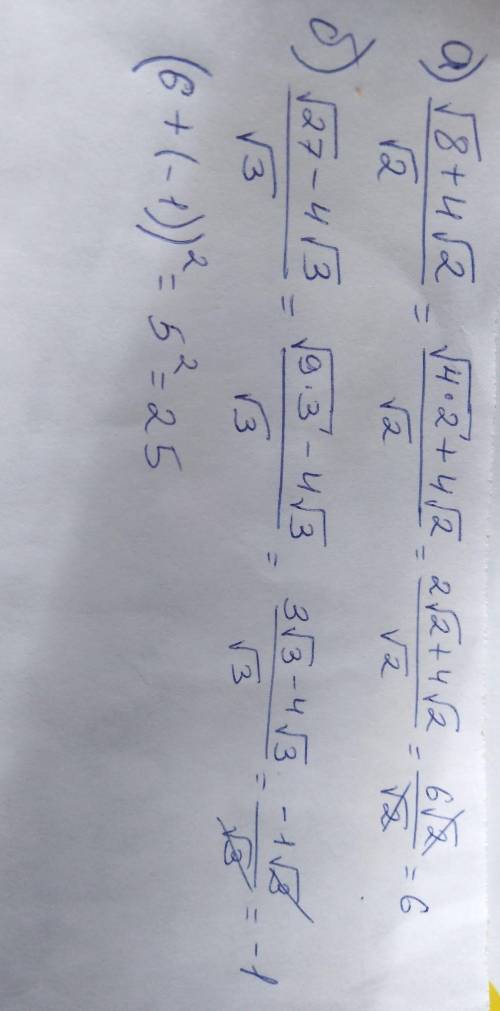 а) (√8 + 4√2)/√2 = (√4·2 + 4√2)/√2 = (2√2 + 4√2)/√2 = 6√2/√2 = 6
б) (√27 - 4√3)/√3 = (√9·3 - 4√3)/√3 = (3√3 - 4√3)/√3 = -1√3/√3 = -1
(6 + (-1))² = 5² = 25